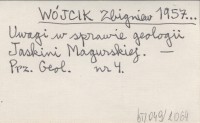 WÓJCIK Zbigniew 1957...
Uwagi w sprawie geologii
Jaskini Magurskiej. —
Prz. Geol. nr 4.